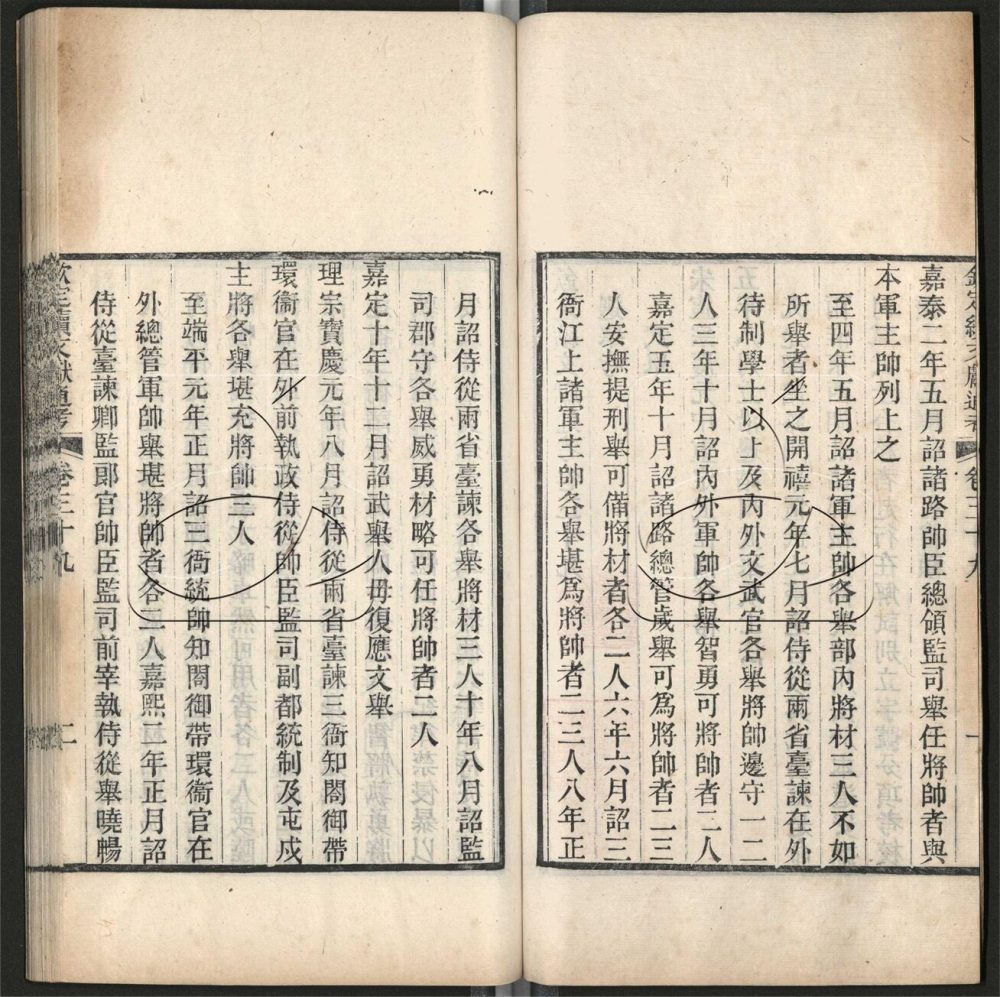 欽定續文獻通考 卷三十九 一
嘉泰二年五月詔諸路帥臣總領監司舉任將帥者與
本軍主帥列上之
至四年五月詔諸軍主帥各舉部內將材三人不如
所舉者坐之開禧元年七月詔侍從兩省臺諫在外
待制學士以上及內外文武官各舉將帥邊守一二
人三年十月詔內外軍帥各舉智勇可將帥者二人
嘉定五年十月詔諸路總管歲舉可爲將帥者二三
人安撫提刑舉可備將材者各二人六年六月詔三
衙江上諸軍主帥各舉堪爲將帥者二三人八年正
月詔侍從兩省臺諫各舉將材三人十年八月詔監
司郡守各舉威勇材略可任將帥者二人
嘉定十年十二月詔武舉人毋復應文舉
理宗寶慶元年八月詔侍從兩省臺諫三衙知閤御帶
環衞官在外前執政侍從帥臣監司副都統制及屯戍
主將各舉堪充將帥三人
至端平元年正月詔三衙統帥知閤御帶環衞官在
外總管軍帥舉堪將帥者各三人嘉熙二年正月詔
侍從臺諫卿監郎官帥臣監司前宰執侍從舉曉暢
欽定續文獻通考 卷三十九 二